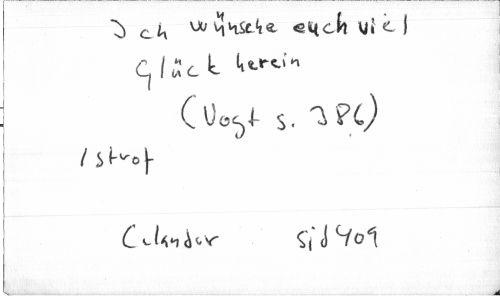 Ich wünsche euch viel
Glück herein
(Vogt s. 386)
1 strof
Celander sid 409